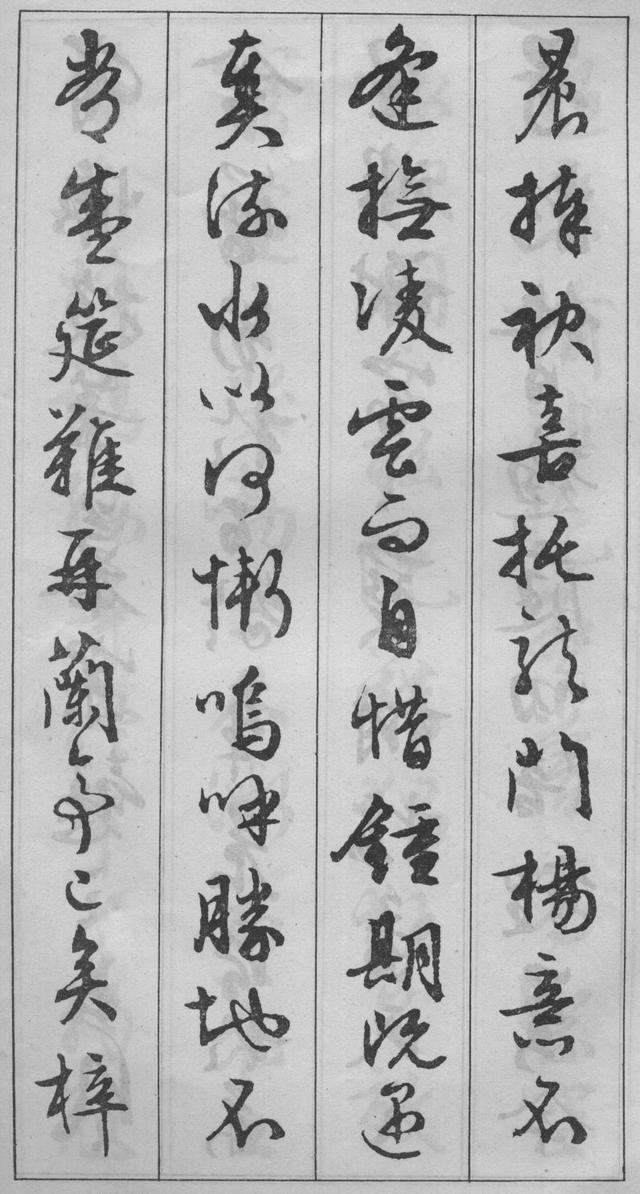 晨捧袂喜托龍門楊意不
逢撫凌雲而自惜鍾期既遇
奏流水以何慚嗚呼勝地不
常盛筵難再蘭亭已矣梓